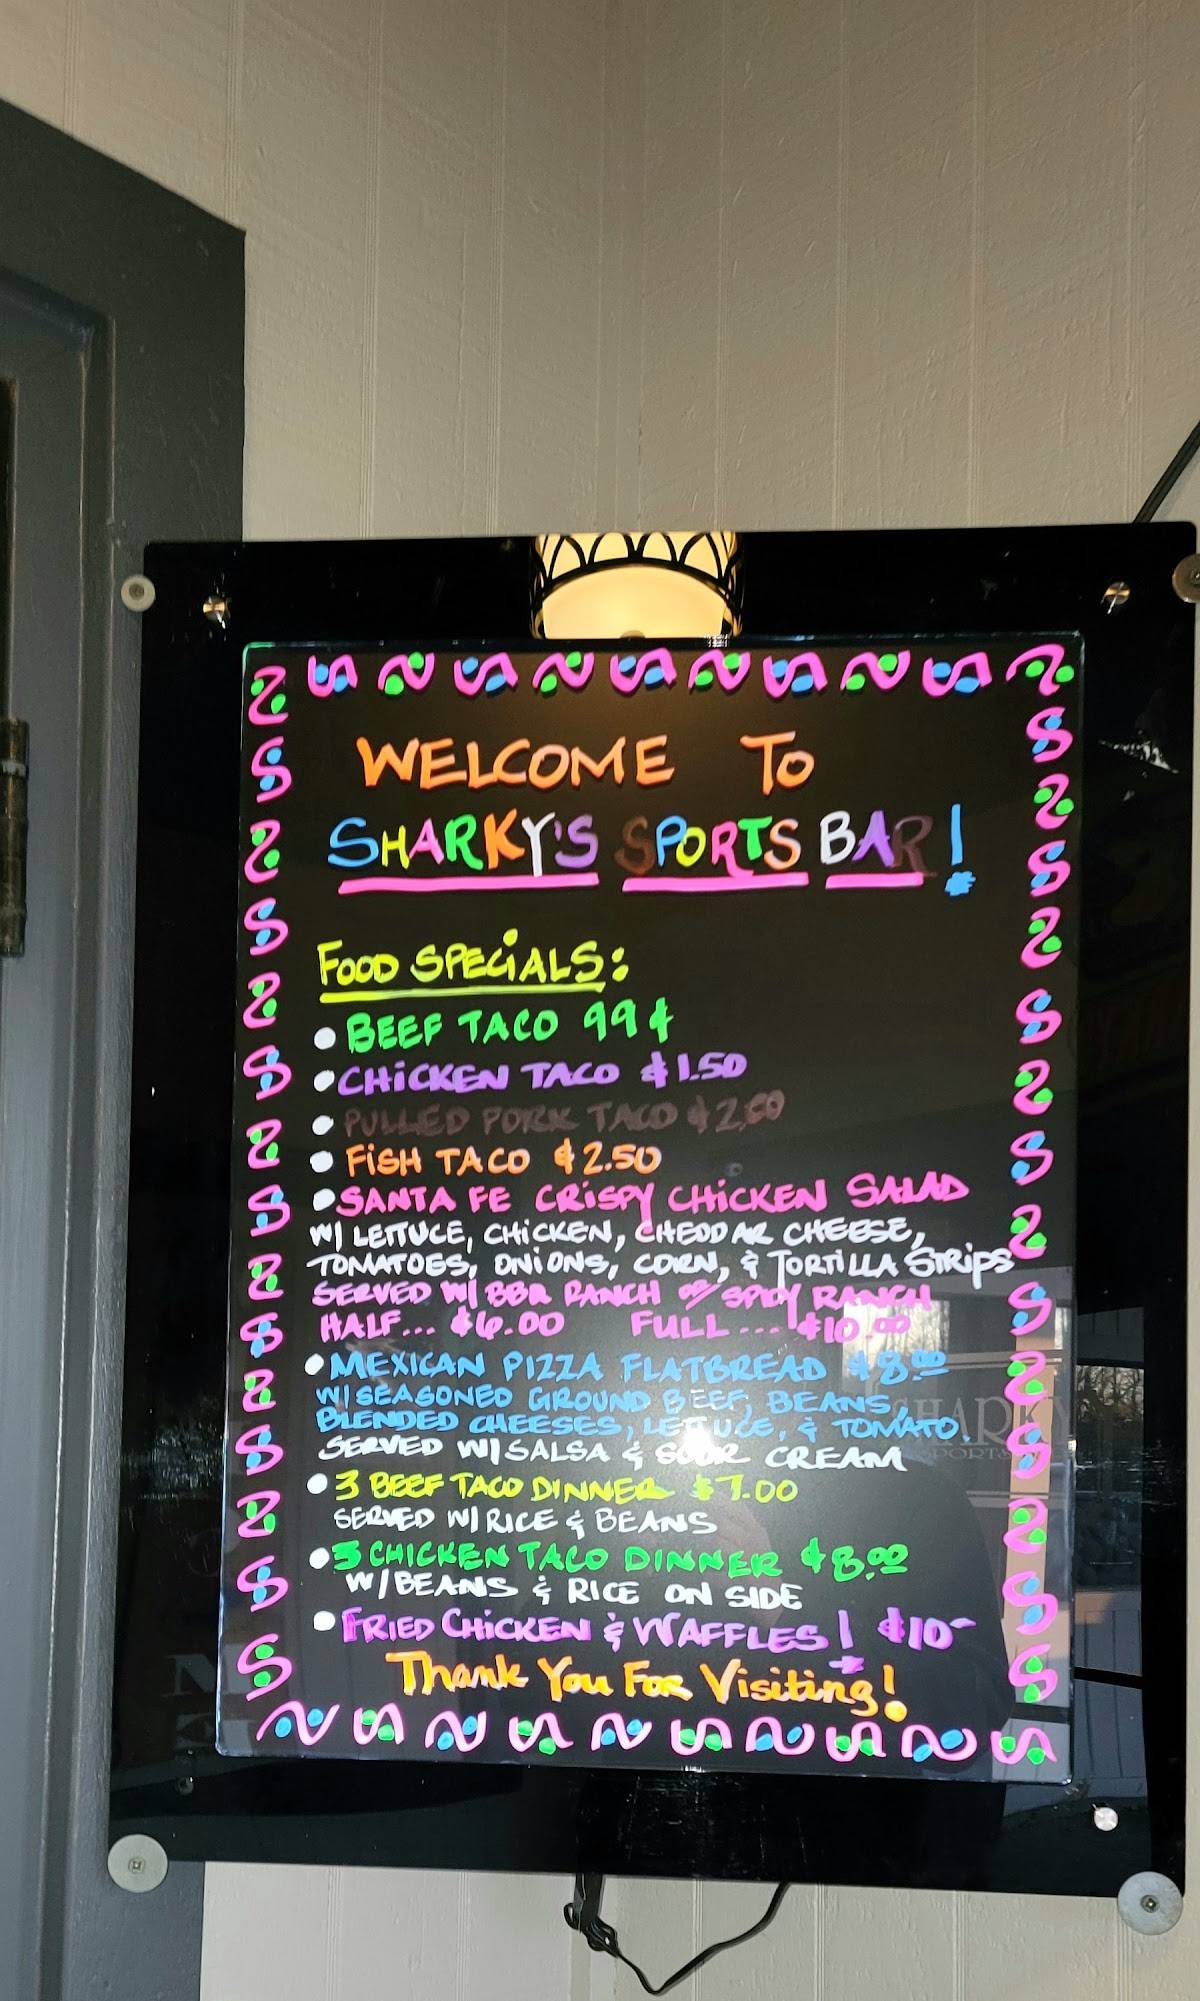 WELCOME TO
SHARKY'S SPORTS BAR!
FOOD SPECIALS:
• BEEF TACO 99¢
• CHICKEN TACO $1.50
• PULLED PORK TACO $2.00
• FISH TACO $2.50
• SANTA FE CRISPY CHICKEN SALAD
W/ LETTUCE, CHICKEN, CHEDDAR CHEESE,
TOMATOES, ONIONS, CORN, & TORTILLA STRIPS
SERVED W/ BBQ RANCH OR SPICY RANCH
HALF... $6.00 FULL ... $10.00
• MEXICAN PIZZA FLATBREAD $8.00
W/ SEASONED GROUND BEEF, BEANS,
BLENDED CHEESES, LETTUCE, & TOMATO.
SERVED W/ SALSA & SOUR CREAM
• 3 BEEF TACO DINNER $7.00
SERVED W/ RICE & BEANS
• 3 CHICKEN TACO DINNER $8.00
W/ BEANS & RICE ON SIDE
• FRIED CHICKEN & WAFFLES! $10-
Thank You For Visiting!